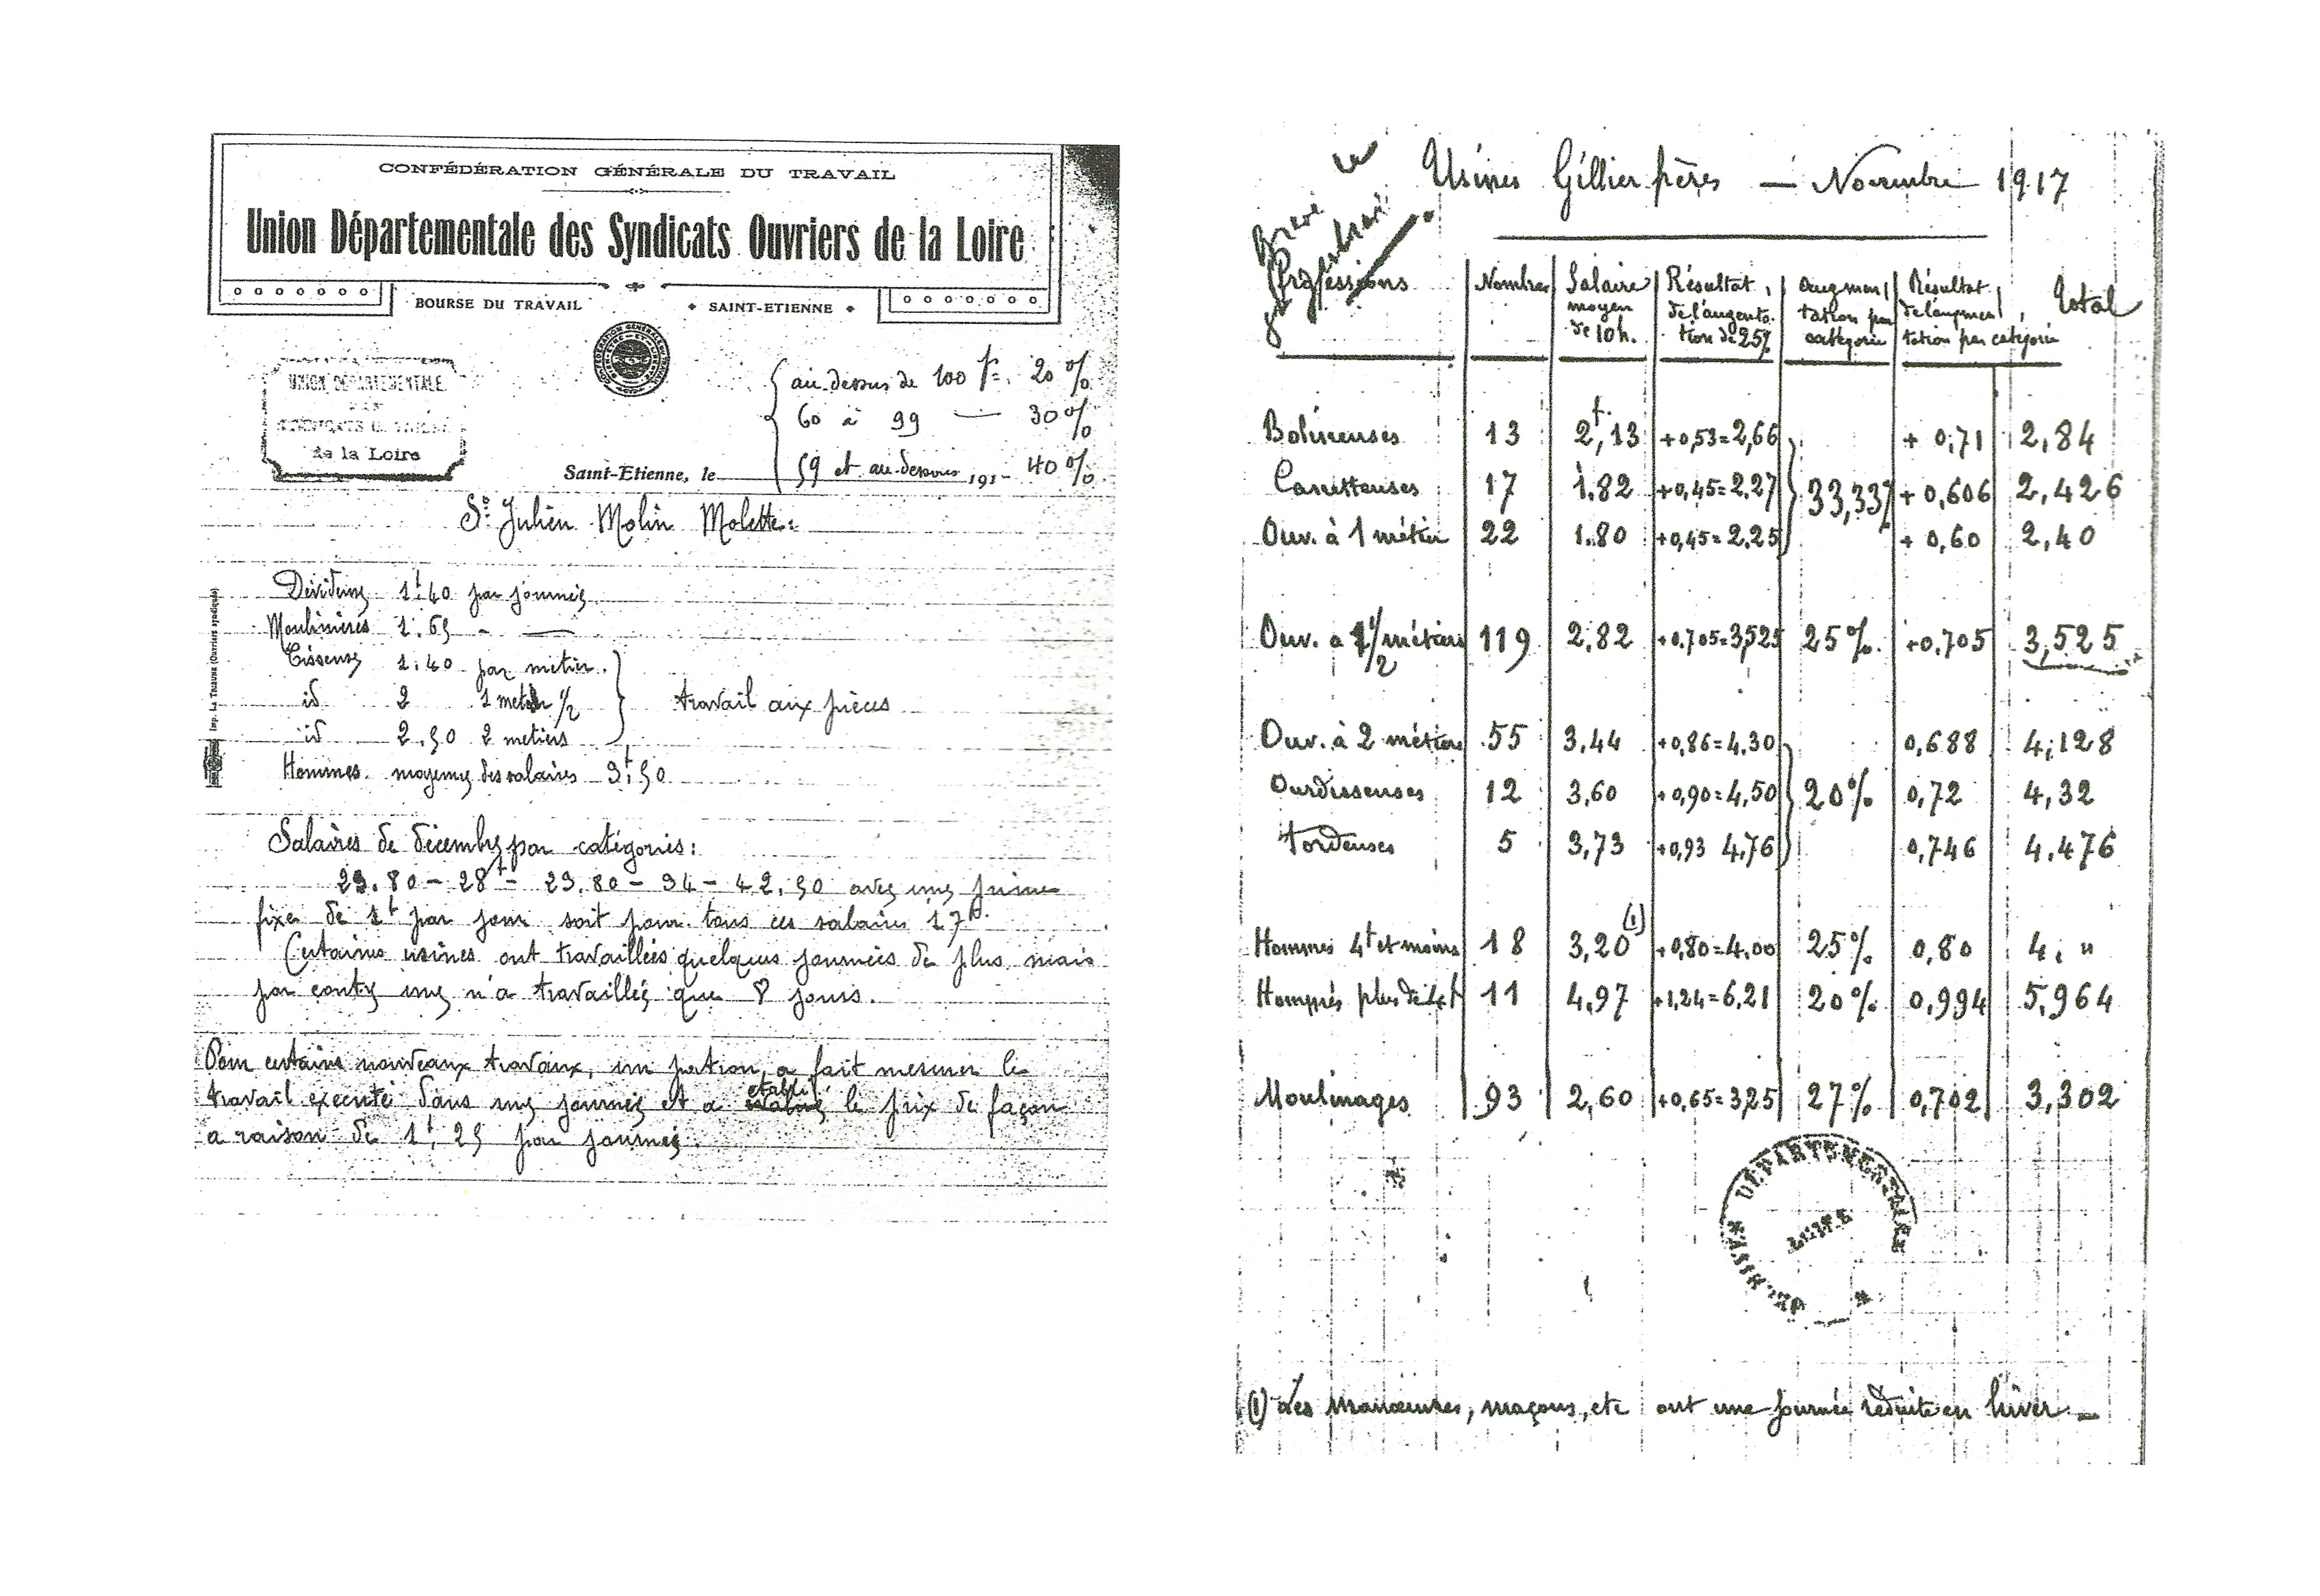 CONFÉDÉRATION GÉNÉRALE DU TRAVAIL
Union Départementale des Syndicats Ouvriers de la Loire
BOURSE DU TRAVAIL SAINT-ETIENNE
UNION DÉPARTEMENTALE
de la Loire
au dessus de 100 f. 20 %
60 à 99 — 30 %
59 et au-dessous 40 %
Saint-Etienne, le 191-
St Julien Molin Molette
Imp. LA TRIBUNE (Ouvriers syndiqués)
Dévideuses 1f40 par journée
Moulinières 1.65 - —
Tisseuses 1.40 par metier
id 2 1 metier 1/2
id 2.50 2 metiers
travail aux pièces
Hommes moyenne des salaires 3f50
Salaires de décembre par catégories:
23.80 - 28f - 23.80 - 34 - 42.50 avec une prime
fixe de 1f par jour soit pour tous ces salaires 17f.
Certaines usines ont travaillées quelques journées de plus mais
par contre une n'a travaillée que 8 jours.
Pour certains nouveaux travaux, un patron a fait mesurer le
travail executé dans une journée et a établi le prix de façon
a raison de 1f,25 par journée.
Usines Gillier frères — Novembre 1917
Professions Nombre Salaire moyen de 10 h. Résultat de l'augenta tion de 25% Augmen tation par catégorie Résultat de l'augmen tation par catégorie Total
Bobineuses 13 2f,13 +0,53=2,66 + 0,71 2,84
Canetteuses 17 1.82 +0,45=2,27 33,33% + 0,606 2,426
Ouv. à 1 métier 22 1.80 +0,45=2,25 + 0,60 2,40
Ouv. à 1 1/2 métiers 119 2,82 +0.705=3,525 25%. +0.705 3,525
Ouv. à 2 métiers 55 3.44 +0,86=4,30 0,688 4,128
Ourdisseuses 12 3,60 +0,90=4,50 20% 0,72 4,32
Tordeuses 5 3,73 +0,93 4,76 0,746 4.476
Hommes 4f et moins 18 3,20 (1) +0,80=4.00 25% 0,80 4, "
Hommes plus de 4f 11 4,97 +1,24=6,21 20% 0,994 5,964
Moulinages 93 2,60 +0,65=3,25 27% 0,702 3,302
DÉPARTEMENTALES
LOIRE
(1) Les manœuvres, maçons, etc ont une journée réduite en hiver —